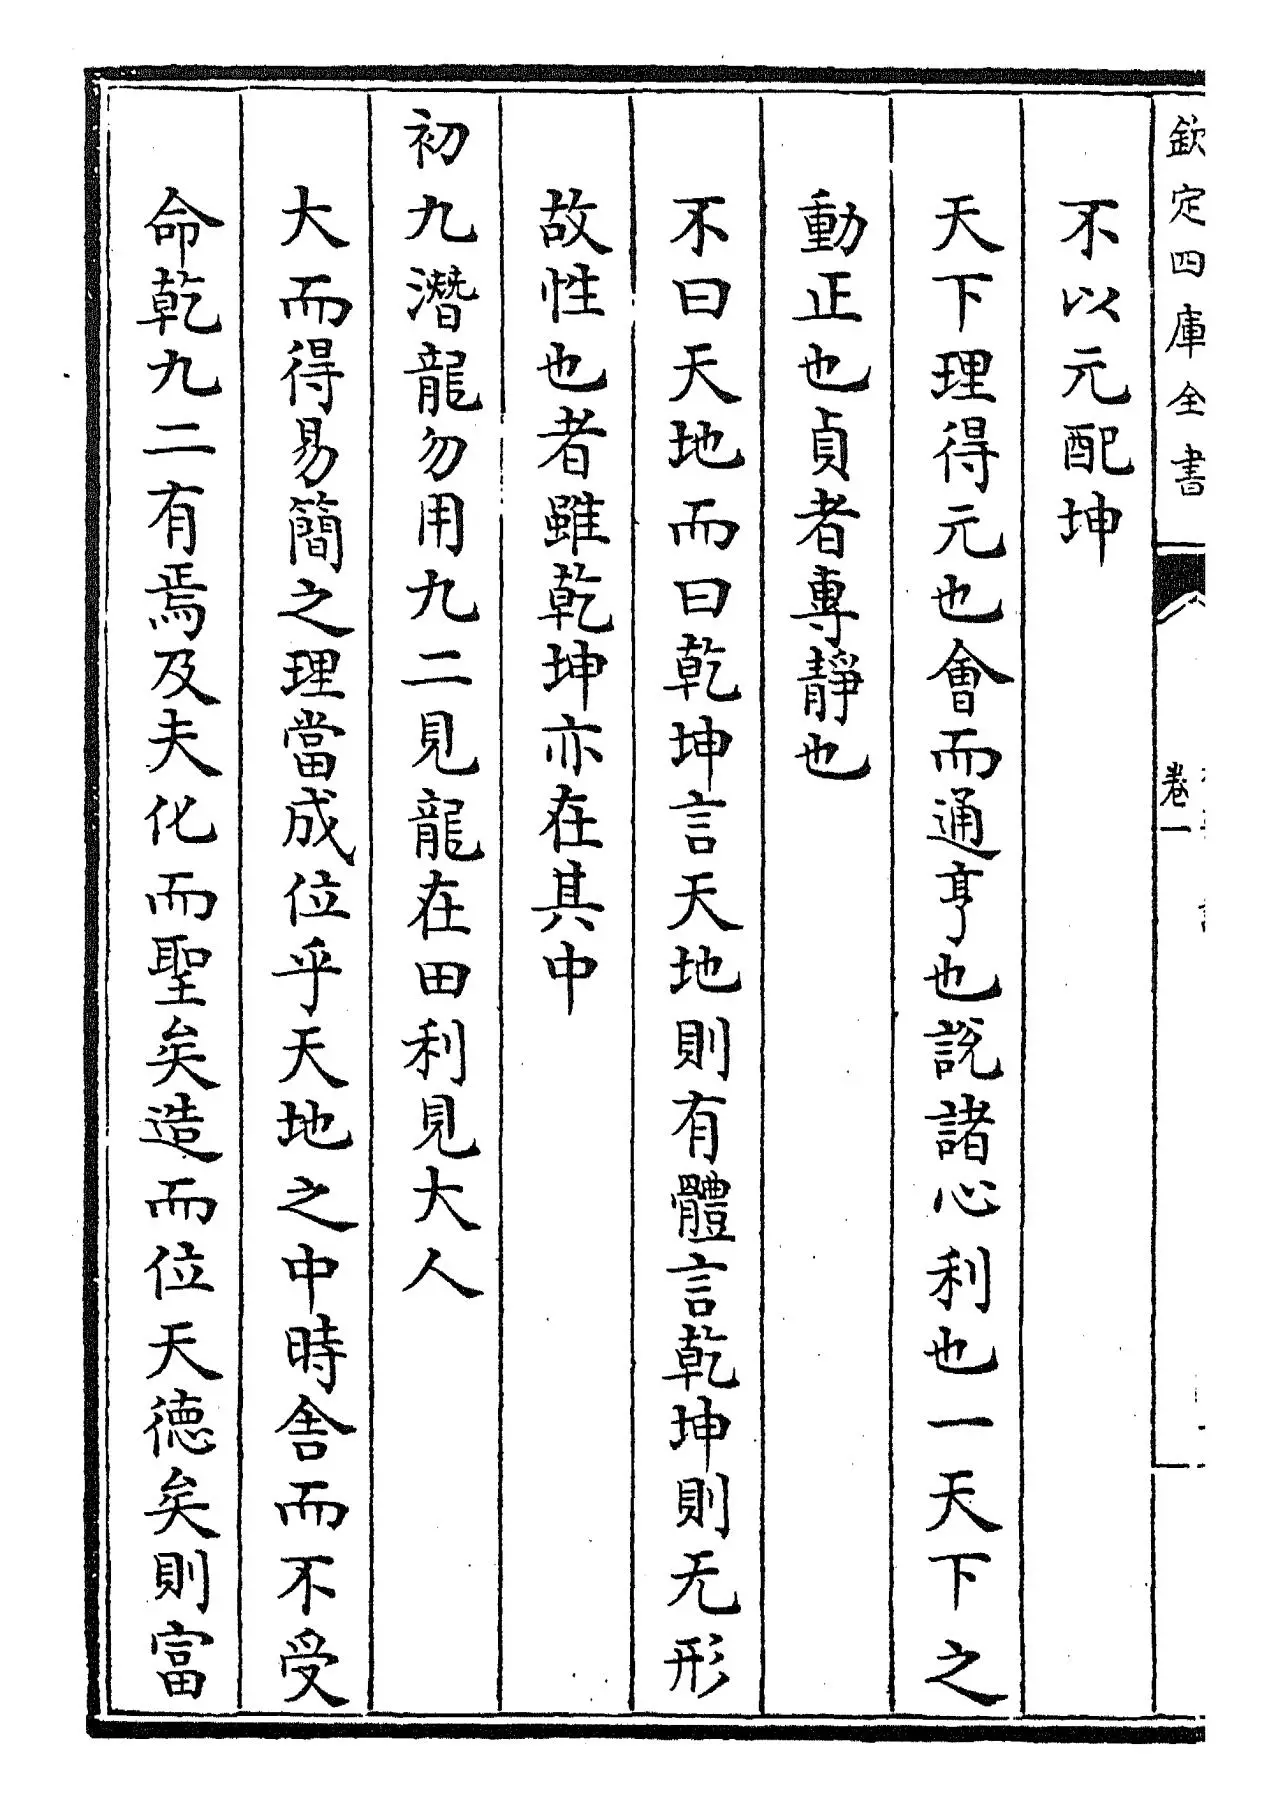 欽定四庫全書
卷一
不以元配坤
天下理得元也會而通亨也說諸心利也一天下之
動正也貞者專靜也
不曰天地而曰乾坤言天地則有體言乾坤則无形
故性也者雖乾坤亦在其中
初九潛龍勿用九二見龍在田利見大人
大而得易簡之理當成位乎天地之中時舎而不受
命乾九二有焉及夫化而聖矣造而位天德矣則富